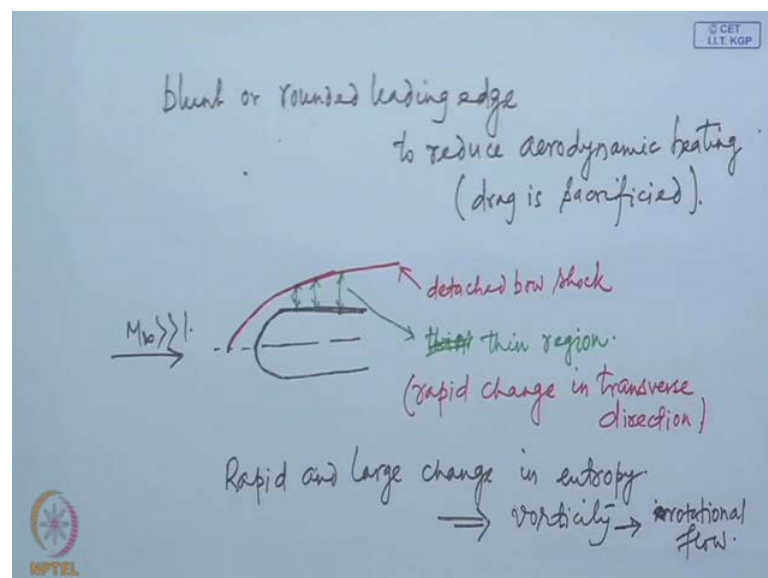 © CET
I.I.T. KGP
blunt or rounded leading edge
to reduce aerodynamic heating
(drag is sacrificied).
detached bow shock
M∞>>1.
thin region.
(rapid change in transverse
direction)
Rapid and large change in entropy
⇒ vorticity → rotational
flow.
NPTEL